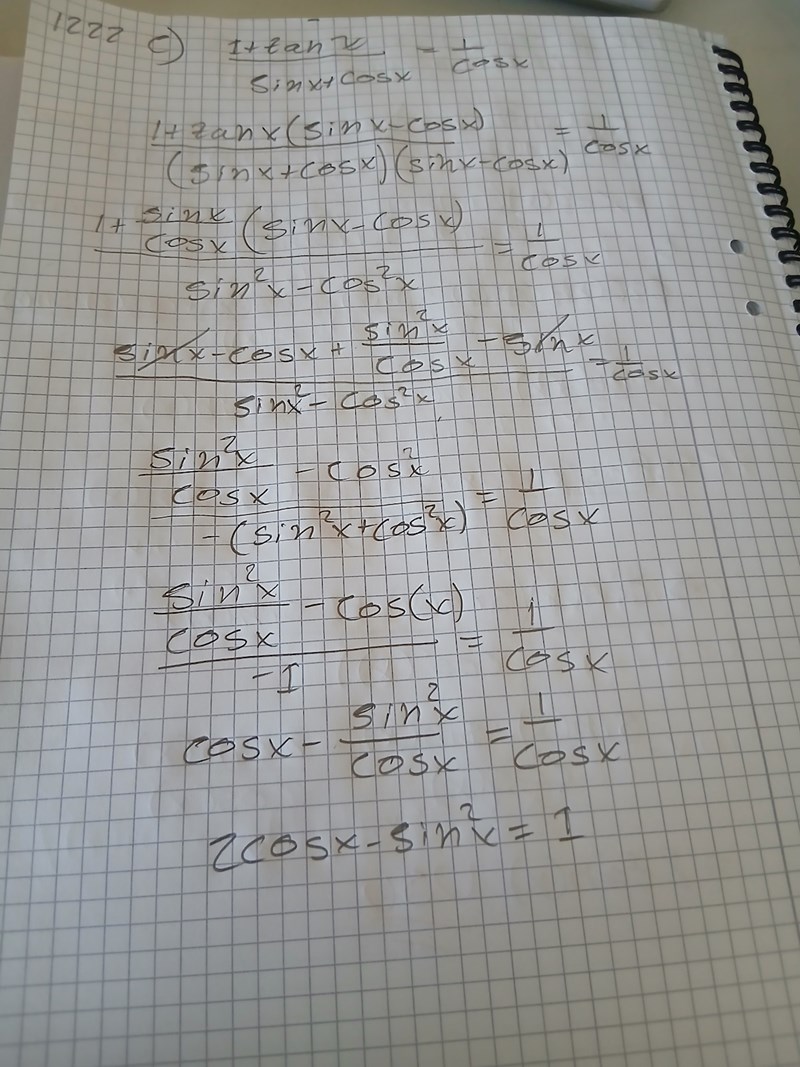 1222 c) (1+tan x)/(sinx+cosx) = 1/cosx
(1+tanx(sinx-cosx))/((sinx+cosx)(sinx-cosx)) = 1/cosx
(1+ sinx/cosx (sinx-cosx))/(sin²x-cos²x) = 1/cosx
(sinx-cosx+ sin²x/cosx -sinx)/(sinx²-cos²x) = 1/cosx
(sin²x/cosx - cos²x)/(-(sin²x+cos²x)) = 1/cosx
(sin²x/cosx - cos(x))/(-1) = 1/cosx
cosx - sin²x/cosx = 1/cosx
2cosx-sin²x = 1